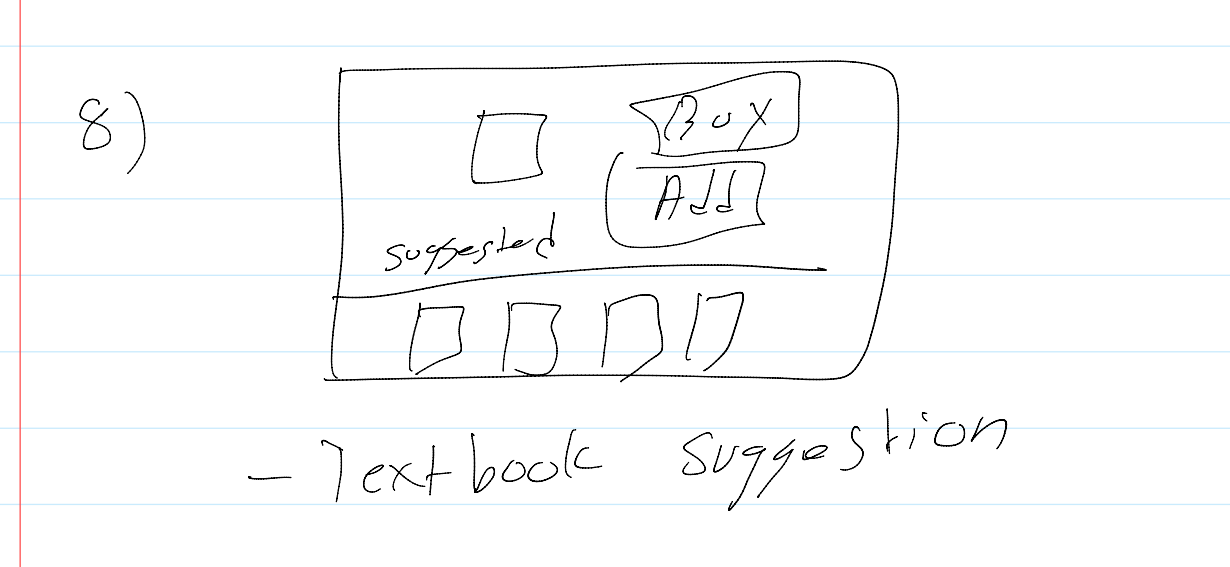 8)
Box
Add
suggested
- Textbook suggestion